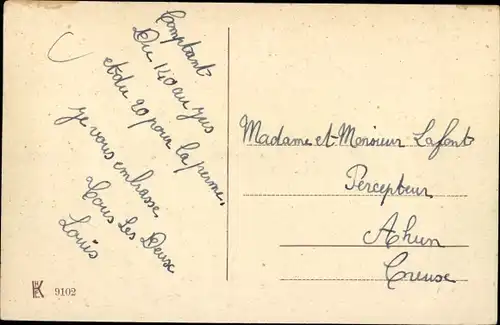 Comptant
Du 140 au jus
et du 20 pour la perme.
je vous embrasse
Tous Les Deux
Louis
Madame et Monsieur Lafont
Percepteur
Ahun
Creuse
HKE 9102